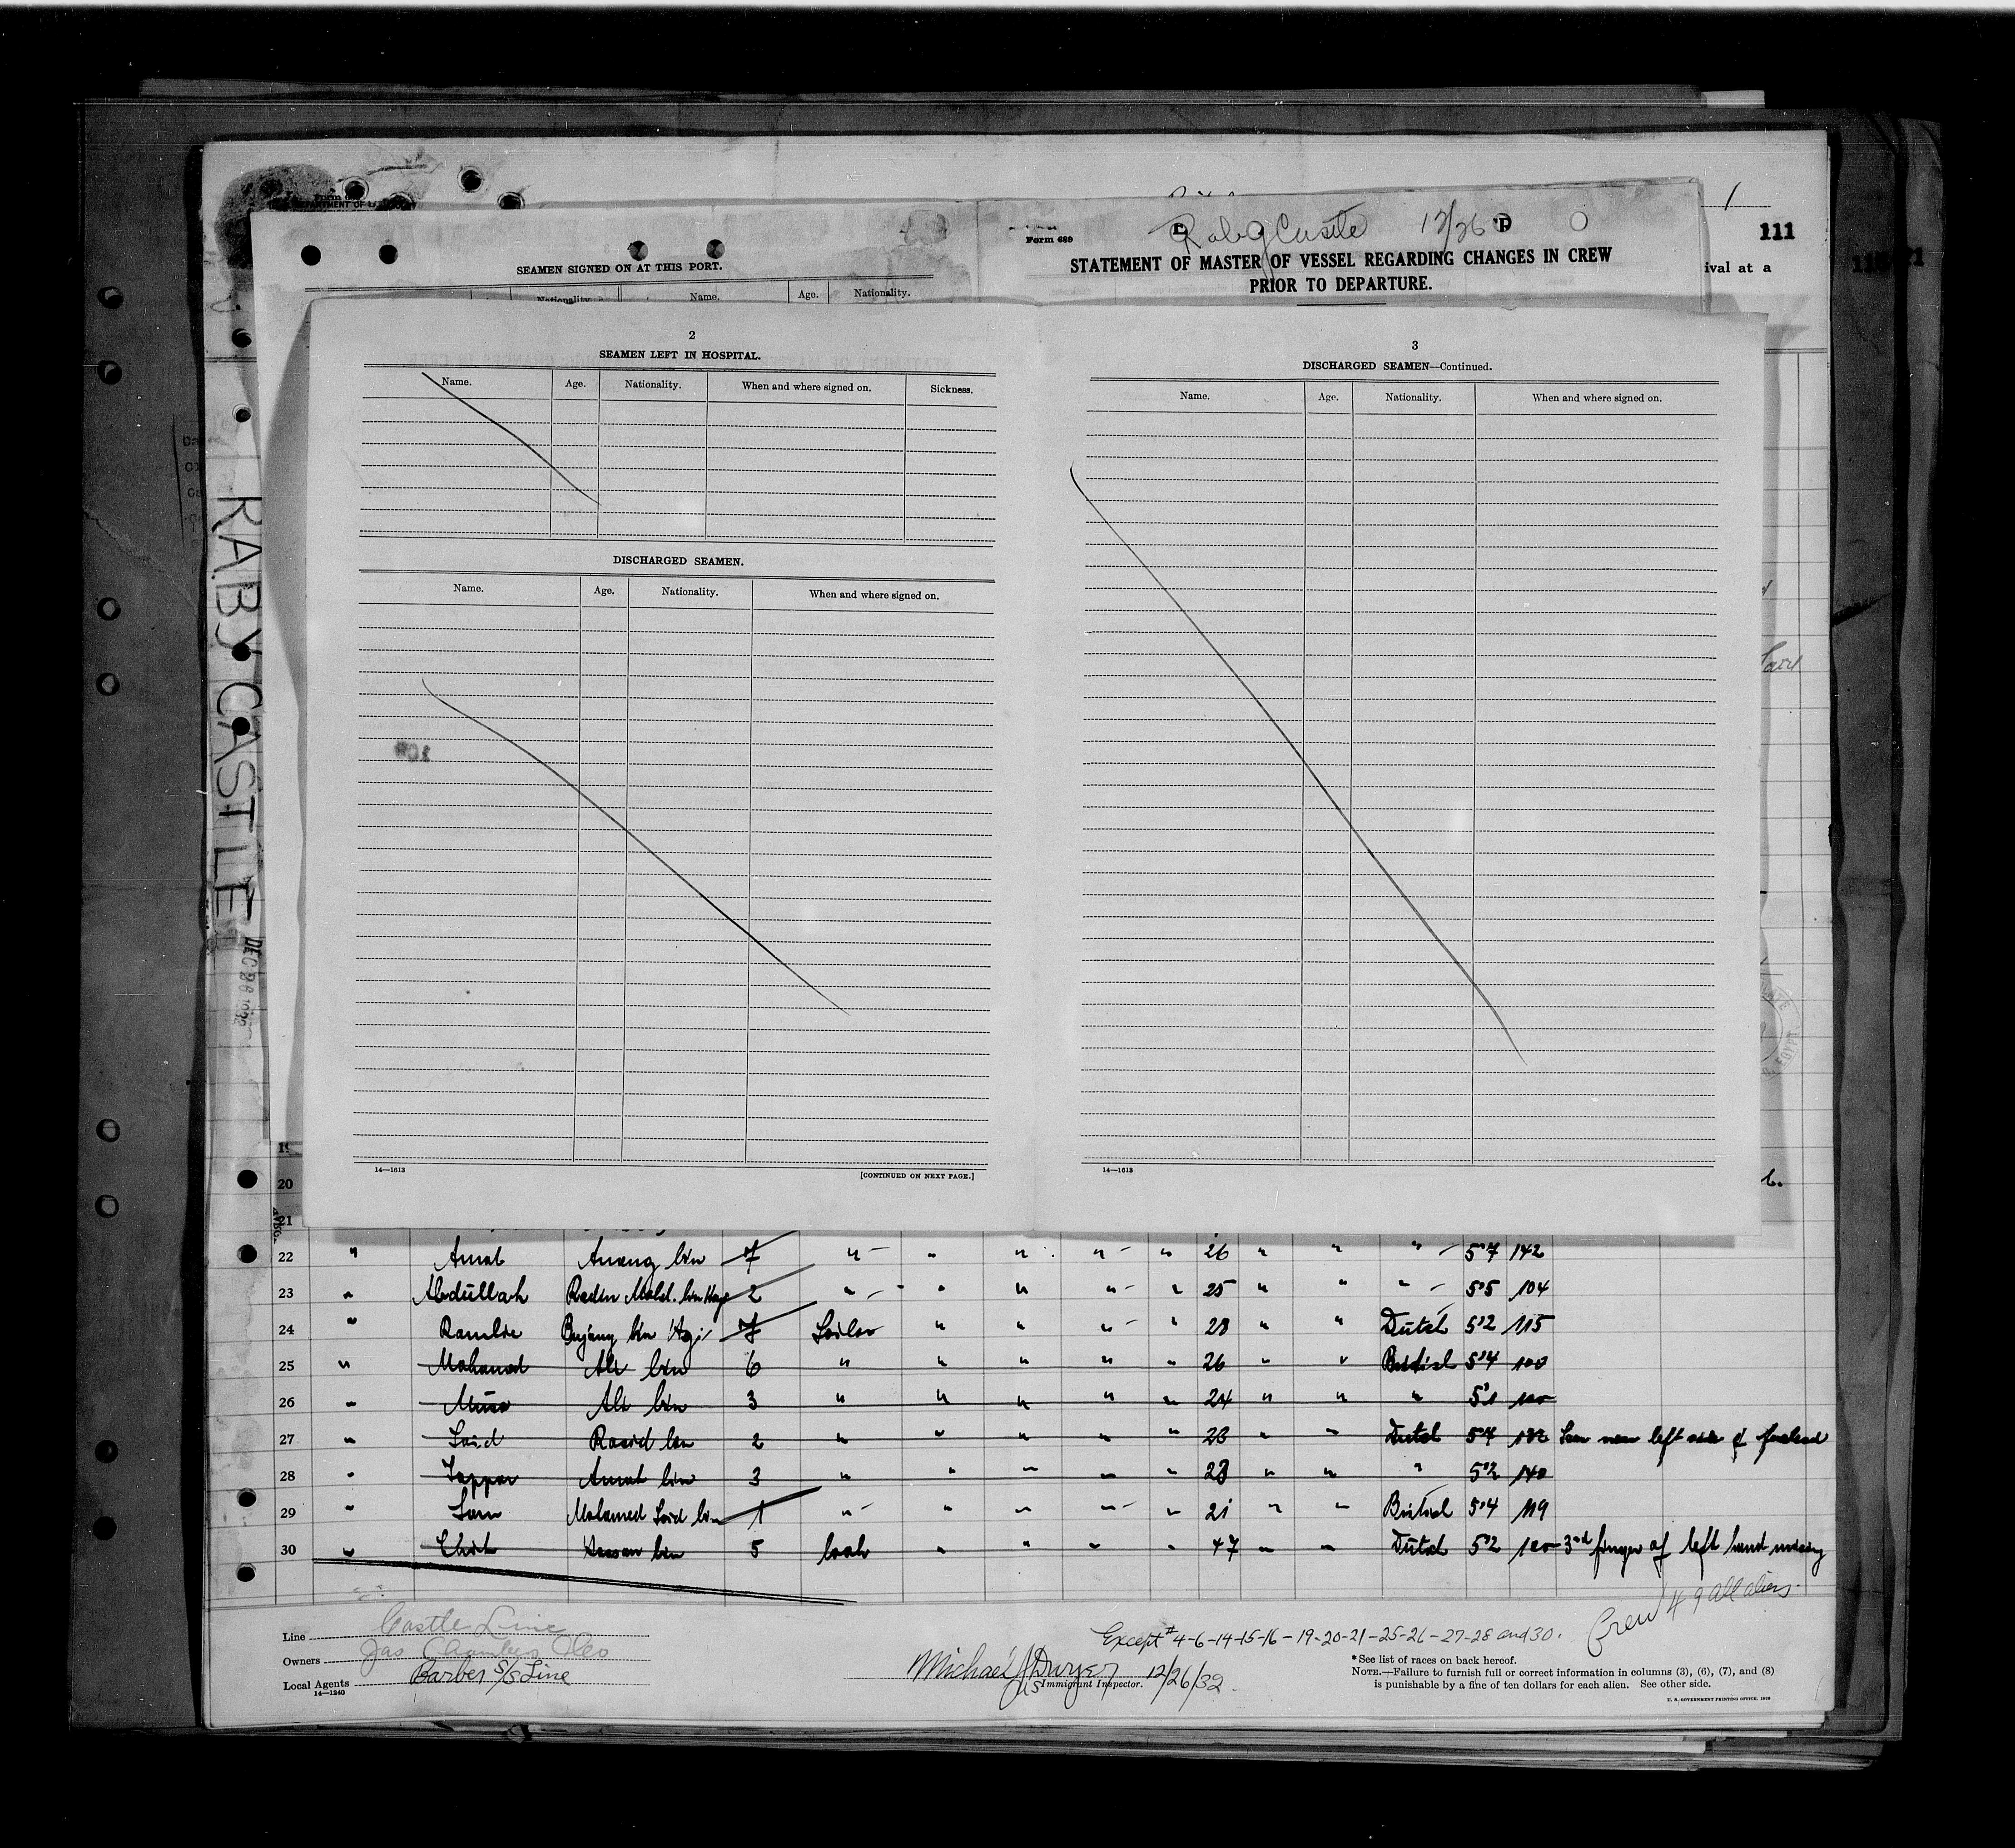 RABY CASTLE
DEC 26 1932
111
ival at a
Form 689
Raby Castle 12/26
STATEMENT OF MASTER OF VESSEL REGARDING CHANGES IN CREW
PRIOR TO DEPARTURE.
SEAMEN SIGNED ON AT THIS PORT.
Nationality. Name. Age. Nationality.
2
SEAMEN LEFT IN HOSPITAL.
Name. Age. Nationality. When and where signed on. Sickness.
DISCHARGED SEAMEN.
Name. Age. Nationality. When and where signed on.
14—1613
[CONTINUED ON NEXT PAGE.]
3
DISCHARGED SEAMEN—Continued.
Name. Age. Nationality. When and where signed on.
14—1613
20
21
22 " Amat Anang bin 7 " " " " " 26 " " " 5'7 142
23 " Abdullah Radin Mohd. bin 2 " " " " " 25 " " " 5'5 104
24 " Ramlie Bujang bin 7 Sailor " " " " 28 " " Dutch 5'2 115
25 " Mohamed Ali bin 6 " " " " " 26 " " British 5'4 100
26 " Musa Ali bin 3 " " " " " 24 " " " 5'1 100
27 " Said Rasid bin 2 " " " " " 28 " " Dutch 5'4 left side of forehead
28 " Amat bin 3 " " " " " 28 " " " 5'2 140
29 " Mohamed Said bin 1 " " " " " 21 " " British 5'4 119
30 " Hassan bin 5 " " " " 47 " " Dutch 5'2 100 3rd finger of left hand missing
Crew 49 all aliens.
Except # 4-6-14-15-16-19-20-21-25-26-27-28 and 30.
Line Castle Line
Owners Jas Chambers & Co
Local Agents Barber S/S Line
14—1240
Michael J Dwyer 12/26/32.
Immigrant Inspector.
* See list of races on back hereof.
NOTE.—Failure to furnish full or correct information in columns (3), (6), (7), and (8)
is punishable by a fine of ten dollars for each alien. See other side.
U. S. GOVERNMENT PRINTING OFFICE